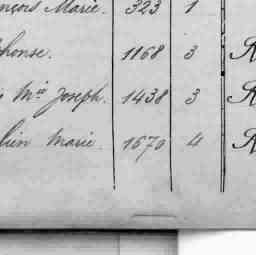 nçois Marie. 323 1
phonse. 1168 3 R
s Mie Joseph. 1438 3 R
lien Marie. 1670 4 R